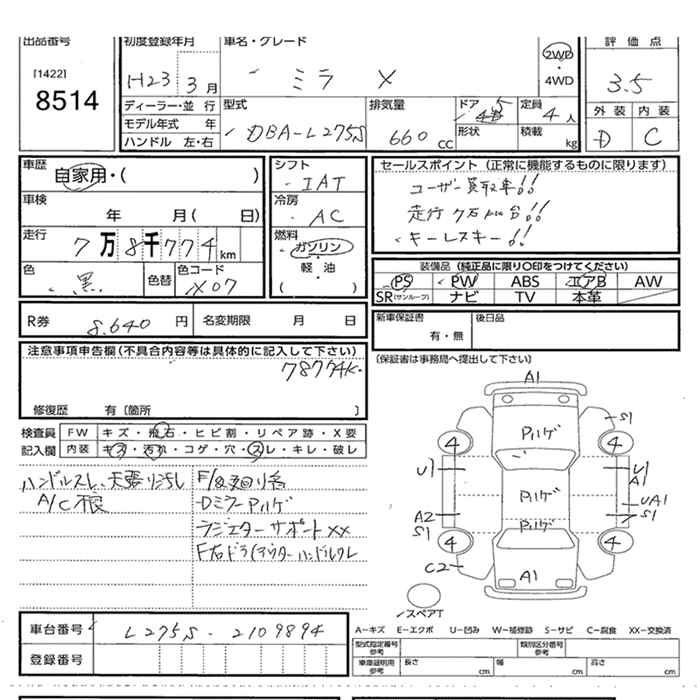 出品番号
[1422]
8514
初度登録年月
H23 3月
車名・グレード
ミラ X
2WD
・
4WD
評価点
3.5
外装 内装
D C
ディーラー・並行
モデル年式 年
ハンドル 左・右
型式
DBA-L275S
排気量
660cc
ドア 5
形状
定員
4人
積載
kg
車歴
自家用・( )
車検
年 月( 日)
走行
7万8千774km
色
黒
色替
色コード
X07
シフト
IAT
冷房
AC
燃料
ガソリン
軽・油
( )
セールスポイント(正常に機能するものに限ります)
ユーザー買取車!!
走行7万km台!!
キーレスキー!!
装備品(純正品に限り○印をつけてください)
PS PW ABS エアB AW
SR(サンルーフ) ナビ TV 本革
R券 8,640円
名変期限 月 日
新車保証書
有・無
後日品
(保証書は事務局へ提出して下さい)
注意事項申告欄(不具合内容等は具体的に記入して下さい)
78774K
修復歴 有〔箇所 〕
検査員
記入欄
FW キズ・飛石・ヒビ割・リペア跡・X要
内装 キズ・汚れ・コゲ・穴・スレ・キレ・破レ
ハンドルスレ、天張り汚れ
A/C
Dミラー Pハゲ
ラジエターサポートXX
A1
Pハゲ
S1
4
4
U1
U1
A1
Pハゲ
UA1
S1
A2
S1
Pハゲ
4
4
C2
A1
スペアT
車台番号
L275S-2109894
登録番号
A-キズ E-エクボ U-凹み W-補修跡 S-サビ C-腐食 XX-交換済
型式指定番号
参考
類別区分番号
参考
車庫証明用
参考
長さ cm
幅 cm
高さ cm